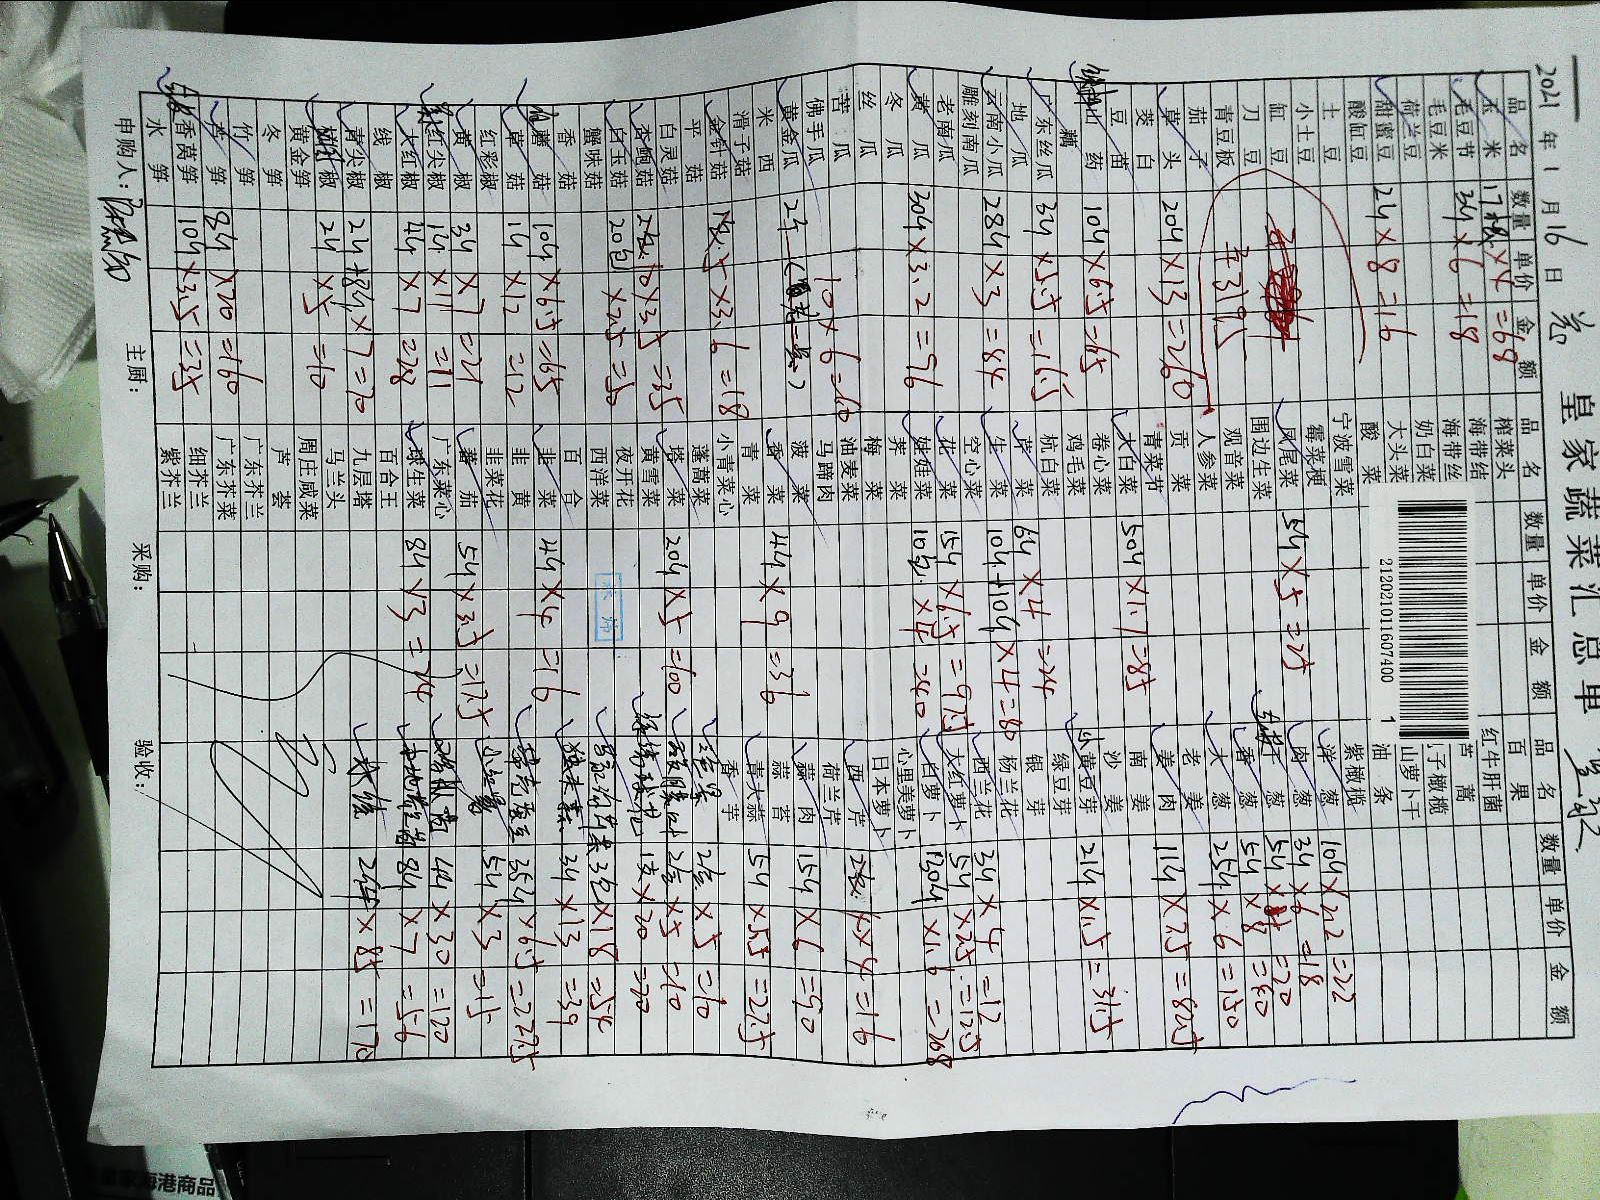 皇家蔬菜汇总单
2021年1月16日
品名 数量 单价 金额
玉米 17 ×4=68
毛豆节 3斤×6=18
毛豆米
荷兰豆
甜蜜豆 2斤×8=16
酸缸豆
土豆
小土豆
缸豆
刀豆
青豆板
茄子
草头 20斤×13=260
茭白
豆苗
山药 10斤×6.5=65
藕
广东丝瓜 3斤×5.5=16.5
地瓜
云南小瓜 28斤×3=84
雕刻南瓜
老南瓜
黄瓜 30斤×3.2=96
冬瓜
丝瓜
苦瓜 10×6=60
佛手瓜
黄金瓜
米西
滑子菇
金针菇 ×3.6=18
平菇
白灵菇
杏鲍菇 10×3.5=35
白玉菇 20包×2.5=50
蟹味菇
香菇
蘑菇 10斤×6.5=65
草菇 1斤×12=12
红彩椒
黄椒 3斤×7=21
红尖椒 1斤×11=11
大红椒 4斤×7=28
青尖椒 2斤+8斤×7=70
线椒
椒 2斤×5=10
黄金笋
冬笋
竹笋
芦笋 8斤×20=160
香莴笋 10斤×3.5=35
水笋
品名 数量 单价 金额
榨菜头
海带结
海带丝
奶白菜
大头菜
酸菜
宁波雪菜
霉菜梗
凤尾菜 5斤×5=25
围边生菜
观音菜
人参菜
贡菜
青菜节
大白菜 50斤×1.7=85
卷心菜
鸡毛菜
杭白菜
芹菜 6斤×4=24
生菜 10斤+10斤×4=80
空心菜
花菜 15斤×6.5=97.5
娃娃菜 10 ×4=40
荠菜
梅菜
油麦菜
马蹄肉
菠菜
香菜 4斤×9=36
青菜
小青菜心
蓬蒿菜
塔菜 20斤×5=100
黄雪菜
夜开花
西洋菜
百合
韭菜 4斤×4=16
韭黄
韭菜花
蕃茄 5斤×3.5=17.5
广东菜心
球生菜 8斤×3=24
百合王
九层塔
马兰头
周庄咸菜
芦荟
广东芥兰
广东芥菜
细芥兰
紫芥兰
品名 数量 单价 金额
百果
红牛肝菌
芦蒿
子橄榄
山萝卜干
油条
紫橄榄
洋葱 10斤×2.2=22
肉葱 3斤×6=18
葱 5斤× =20
香葱 5斤×8=40
大葱 25斤×6=150
老姜
姜肉 11斤×7.5=82.5
南姜
沙姜
黄豆芽 21斤×1.5=31.5
绿豆芽
银芽
杨兰花
西兰花 3斤×4=12
大红萝卜 5斤×2.5=12.5
白萝卜 130斤×1.6=208
心里美萝卜
日本萝卜
西芹 ×4=16
荷兰芹
蒜肉 15斤×6=90
蒜苔
青大蒜 5斤×5.5=27.5
香芋
2盒×5=10
2盒×5=10
1支×20=20
3包×18=54
独头蒜 3斤×13=39
35斤×6.5=227.5
小红 5斤×3=15
4斤×30=120
8斤×7=56
2件×85=170
申购人：
主厨：
采购：
验收：
212021011607400 1
皇家海港商品